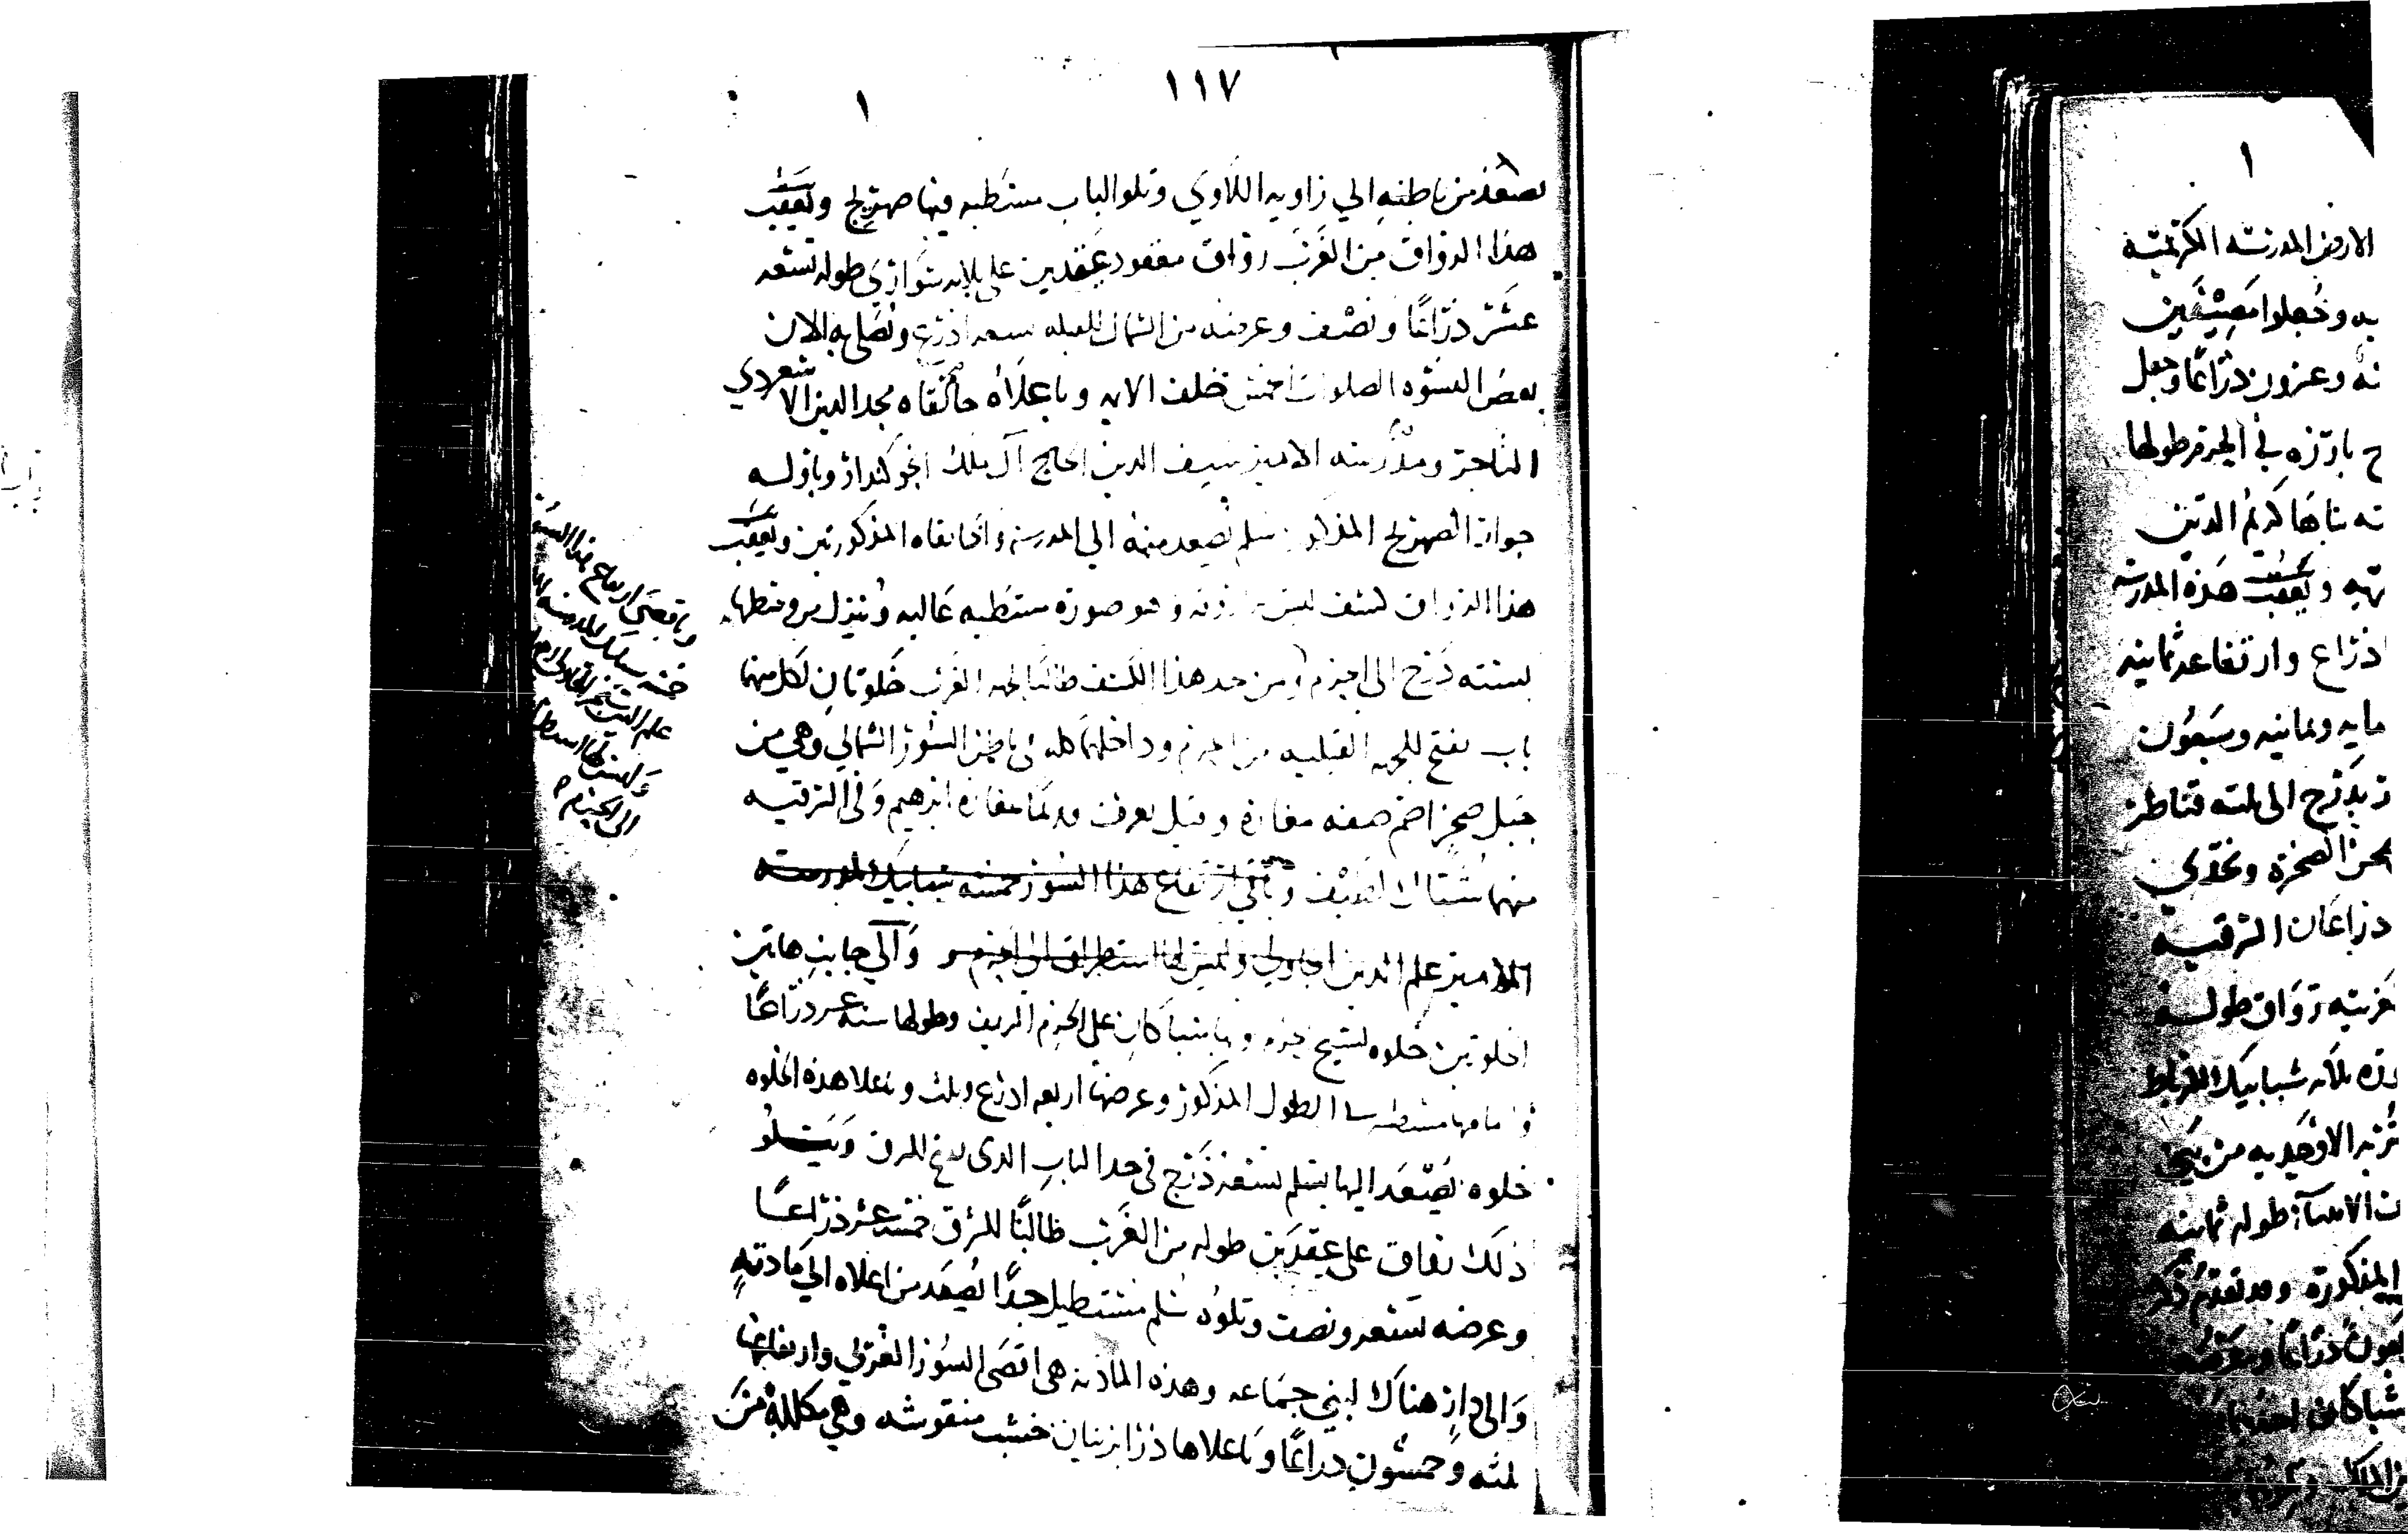 ١١٧
١
يصعد من باطنه الي زاويه اللاوي وتلو الباب مسطبه فيها صهريج ويعقب
هذا الرواق من الغرب رواق معقود بعقدين علي ثلاثه سواري طوله تسعه
عشر ذراعًا ونصف وعرضه من الشمال للقبله سبعه اذرع ويصلي به الان
بعض النسوه الصلوات الخمس خلف الامام وباعلاه خانقاه مجد الدين الاسعردي
التاجر ومدرسه الامير سيف الدين الحاج آل ملك الجوكندار وباوله
جوار الصهريج المذكور سلم يصعد منه الي المدرسه والخانقاه المذكورتين ويعقب
هذا الرواق كشف ليس به اروقه وهو صوره مسطبه عاليه وينزل من وسطها
بسته درج الي الحرم ومن حد هذا الكشف طالبًا لجهه الغرب خلوتان لكل منهما
باب يفتح للجهه القبليه من الحرم وداخلهما كله في باطن السور الشمالي وهي من
جبل صخر اصم صفه مغاره وقيل يعرف قديمًا مغاره ابرهيم وفي الشرقيه
منهما شباك لطيف وباقي ارتفاع هذا السور خمسه شبابيك للمدرسه
الامير علم الدين الجاولي وليس لها استطراق الي الحرم والي جانب هاتين
الخلوتين خلوه لشيخ الحرم وبها شباكان علي الحرم الشريف وطولها سته عشر ذراعًا
وامامها مسطبه الطول المذكور وعرضها اربعه اذرع وثلث وباعلا هذه الخلوه
خلوه يصعد اليها بسلم تسعه درج في حد الباب الذي يفتح للشرق ويتلو
ذلك رواق علي عقدين طوله من الغرب طالبًا للشرق خمسه عشر ذراعًا
وعرضه تسعه ونصف وتلوه سلم مستطيل جدًا يصعد من اعلاه الي مادنه
والي دار هناك لبني جماعه وهذه المادنه هي اقصي السور الغربي وارتفاعها
ثلثه وخمسون دراعًا وباعلاها درابزينان خشب منقوشه وهي مكللة من
وباقصي ارتفاع هذا السور
خمسه شبابيك للمدرسه
علم الدين سنجر الجاولي
وليس لها استطراق
الي الحرم
١
الارض المدرسه الكريميه
به وجعلوا مصيفين
ذراعًا وجعل
بارزه في الحرم طولها
بناها كريم الدين
ويعقب هذه المدرسه
اذرع وارتفاعه ثمانيه
مايه وثمانيه وسبعون
بدرج الي ثلثه قناطر
صحن الصخرة
دراعان الشرقيه
غربيه رواق طوله
ثلاثه شبابيك للرباط
تربه الاوحديه من
طوله ثمانيه
المذكوره وقد تقدم ذكر
شباكان